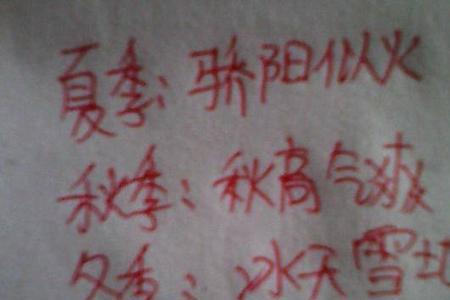 夏季：骄阳似火
秋季：秋高气爽
冬季：冰天雪地